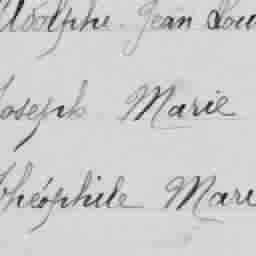 Adolphe Jean Lou
Joseph Marie
Théophile Mari